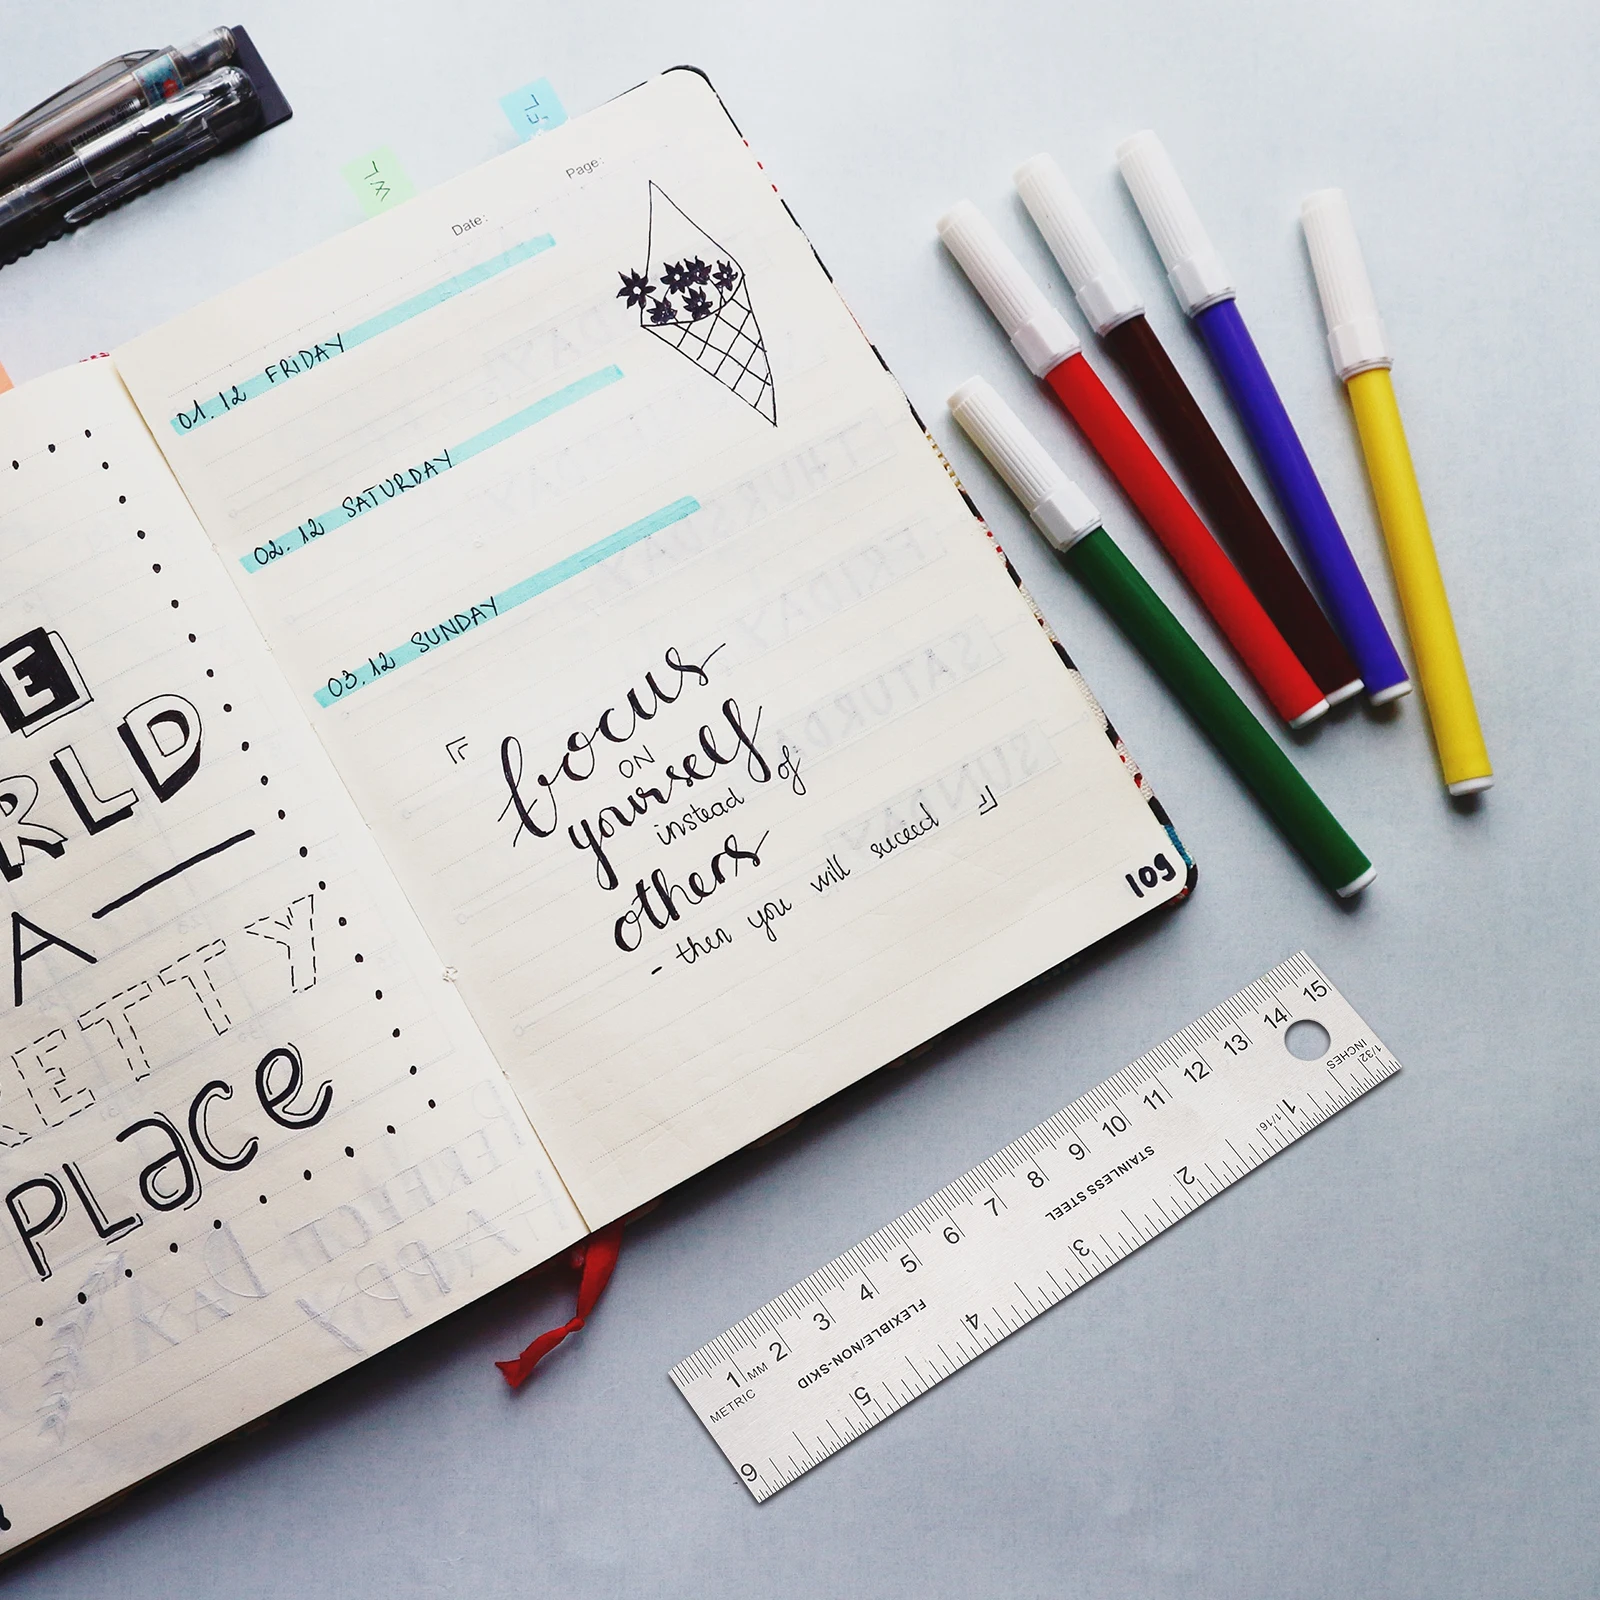 E
RLD
A
RETTY
PLace
Date:
Page:
01.12 FRIDAY
02.12 SATURDAY
03.12 SUNDAY
focus
ON
yourself
instead of
others
- then you will suceed
109
1 2 3 4 5 6 7 8 9 10 11 12 13 14 15
MM
METRIC
STAINLESS STEEL
FLEXIBLE/NON-SKID
1/32
INCHES
1/16
1 2 3 4 5 6